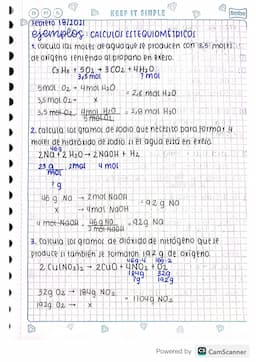 KEEP IT SIMPLE
Febrero 18/2021
ejemplos: CALCULOS ESTEQUIOMÉTRICOS
1. calcula las moles de agua que se producen con 3,5 moles
de oxígeno teniendo al propano en exceso.
C3H8 + 5O2 → 3CO2 + 4H2O
3,5mol ? mol
5mol O2 → 4mol H2O
3,5mol O2 → x
= 2,8 mol H2O
3,5 mol O2 · 4mol H2O / 5mol O2 = 2,8 mol H2O
2. calcula los gramos de sodio que necesito para formar 4
moles de hidróxido de sodio si el agua está en exceso.
46g
2Na + 2H2O → 2NaOH + H2
23 g/mol 2mol 4 mol
? g
46 g Na → 2mol NaOH
x → 4mol NaOH
= 92 g Na
4 mol NaOH · 46 g Na / 2 mol NaOH = 92g Na
3. Calcula los gramos de dióxido de nitrógeno que se
produce si también se formaron 192 g de oxígeno.
2 Cu(NO3)2 → 2CuO + 4NO2 + O2
184g 32g
?g 192g
32g O2 → 184g NO2
192g O2 → x
= 1104g NO2
Powered by CS CamScanner